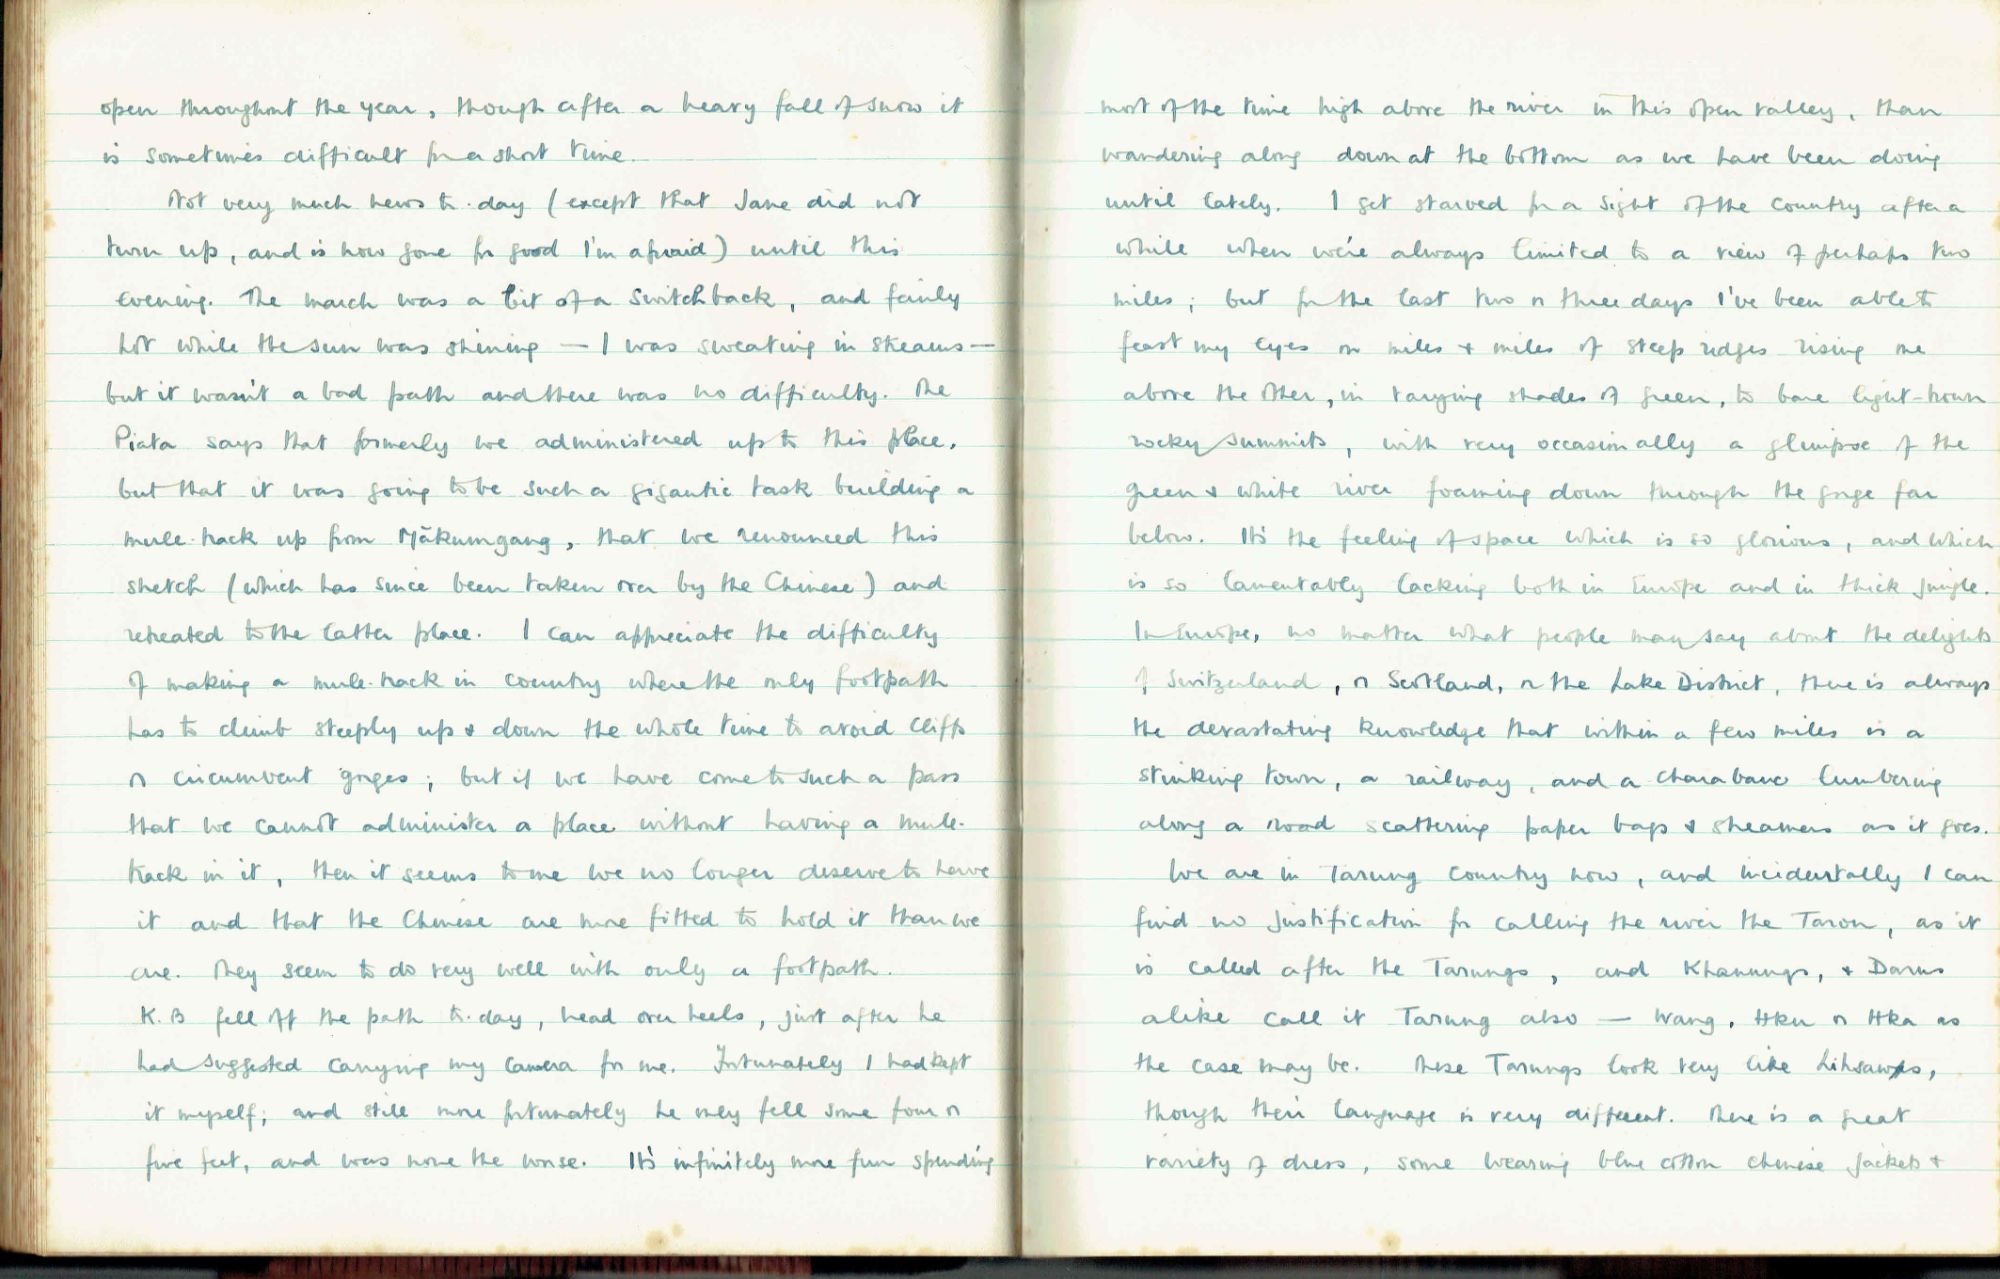 open throughout the year, though after a heavy fall of snow it
is sometimes difficult for a short time.
Not very much news to-day (except that Jane did not
turn up, and is now gone for good I'm afraid) until this
evening. The march was a bit of a switchback, and fairly
hot while the sun was shining — I was sweating in streams —
but it wasn't a bad path and there was no difficulty. The
Piata says that formerly we administered up to this place,
but that it was going to be such a gigantic task building a
mule-track up from Mākumgang, that we renounced this
stretch (which has since been taken over by the Chinese) and
retreated to the latter place. I can appreciate the difficulty
of making a mule-track in country where the only footpath
has to climb steeply up & down the whole time to avoid cliffs
or circumvent gorges; but if we have come to such a pass
that we cannot administer a place without having a mule-
track in it, then it seems to me we no longer deserve to have
it and that the Chinese are more fitted to hold it than we
are. They seem to do very well with only a footpath.
K.B fell off the path to-day, head over heels, just after he
had suggested carrying my camera for me. Fortunately I had kept
it myself; and still more fortunately he only fell some four or
five feet, and was none the worse. It's infinitely more fun spending
most of the time high above the river in this open valley, than
wandering along down at the bottom as we have been doing
until lately. I get starved for a sight of the country after a
while when we're always limited to a view of perhaps two
miles; but for the last two or three days I've been able to
feast my eyes on miles & miles of steep ridges rising one
above the other, in varying shades of green, to bare light-brown
rocky summits, with very occasionally a glimpse of the
green & white river foaming down through the gorge far
below. It's the feeling of space which is so glorious, and which
is so lamentably lacking both in Europe and in thick jungle.
In Europe, no matter what people may say about the delights
of Switzerland, or Scotland, or the Lake District, there is always
the devastating knowledge that within a few miles is a
stinking town, a railway, and a charabanc lumbering
along a road scattering paper bags & streamers as it goes.
We are in Tarung country now, and incidentally I can
find no justification for calling the river the Taron, as it
is called after the Tarungs, and Khanungs, & Darus
alike call it Tarung also — Wang, Hku or Hka as
the case may be. These Tarungs look very like Lihsaws,
though their language is very different. There is a great
variety of dress, some wearing blue cotton Chinese jackets &